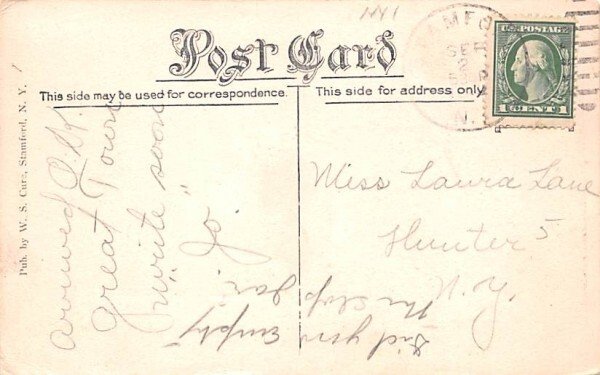 NY1
Post Card
This side may be used for correspondence.
This side for address only
STAMFO
SEP
2
N.Y.
U.S. POSTAGE
1 CENT 1
Pub. by W. S. Cure, Stamford, N. Y.
arrived O.K.
Great Town
write soon
"Jo."
Miss Laura Lane
Hunter
N.Y.
Did you empty
the slop jar